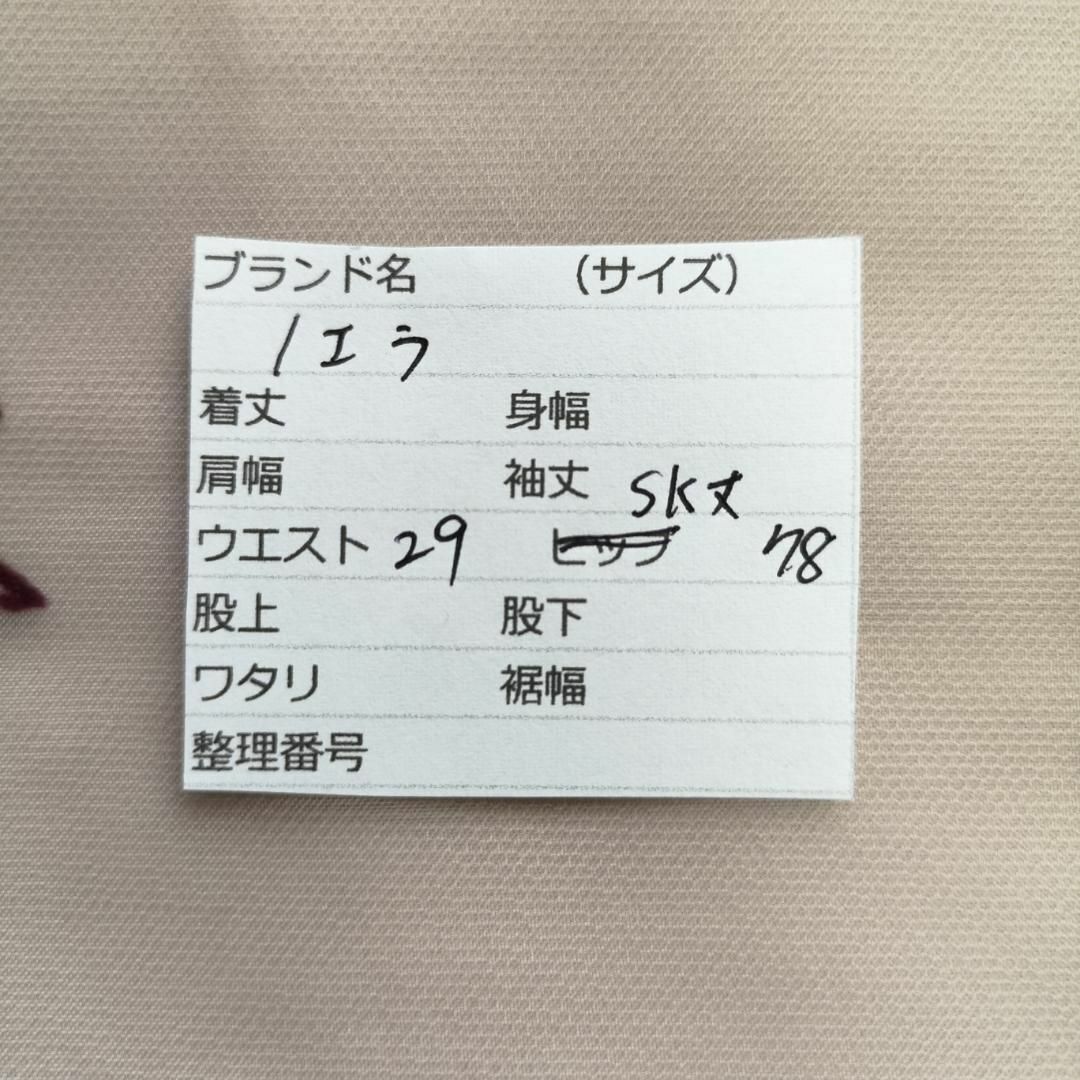 ブランド名 (サイズ)
ノエラ
着丈 身幅
肩幅 袖丈 SK丈
ウエスト 29 ヒップ 78
股上 股下
ワタリ 裾幅
整理番号